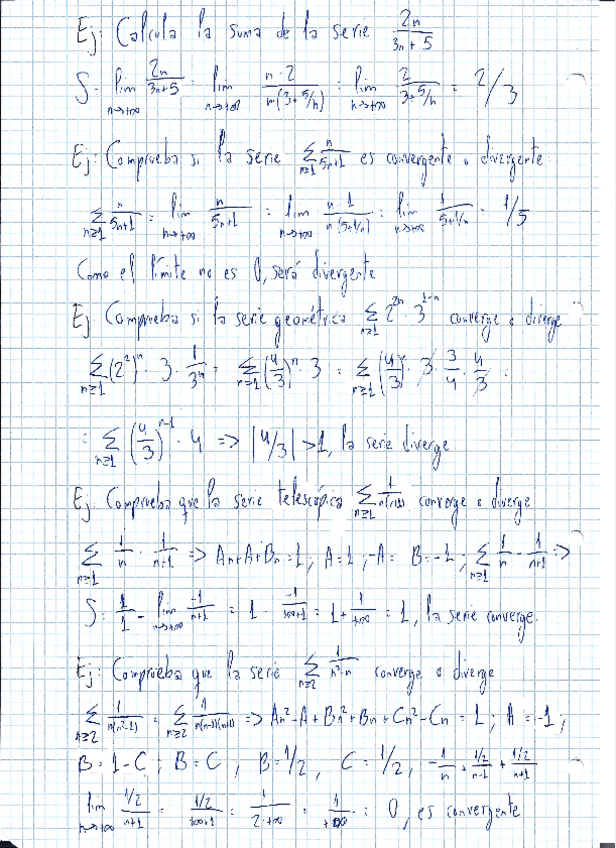 Ej: Calcula la suma de la serie 2n/(3n+5)
S = lim n→+∞ 2n/(3n+5) = lim n→+∞ n·2/(n(3+5/n)) = lim n→+∞ 2/(3+5/n) = 2/3
Ej: Comprueba si la serie Σ n≥1 n/(5n+1) es convergente o divergente
Σ n≥1 n/(5n+1) = lim n→+∞ n/(5n+1) = lim n→+∞ n·1/(n(5+1/n)) = lim n→+∞ 1/(5+1/n) = 1/5
Como el límite no es 0, será divergente
Ej: Comprueba si la serie geométrica Σ n≥1 2^2n · 3^1-n converge o diverge
Σ n≥1 (2^2)^n · 3 · 1/3^n = Σ n≥1 (4/3)^n · 3 = Σ n≥1 (4/3)^n · 3 · 3/4 · 4/3 =
= Σ n≥1 (4/3)^n-1 · 4 => |4/3| > 1, la serie diverge
Ej: Comprueba que la serie telescópica Σ n≥1 1/(n(n+1)) converge o diverge
Σ n≥1 1/n · 1/(n+1) => An+A+Bn = 1; A = 1; -A = B = -1; Σ n≥1 1/n - 1/(n+1) =>
S = 1/1 - lim n→+∞ -1/(n+1) = 1 - -1/(+∞+1) = 1 + 1/+∞ = 1, la serie converge.
Ej: Comprueba que la serie Σ n≥2 1/(n³-n) converge o diverge
Σ n≥2 1/(n(n²-1)) = Σ n≥2 1/(n(n-1)(n+1)) => An²-A+Bn²+Bn+Cn²-Cn = 1; A = -1;
B = 1-C; B = C, B = 1/2, C = 1/2, -1/n + (1/2)/(n-1) + (1/2)/(n+1)
lim n→+∞ (1/2)/(n+1) = (1/2)/(+∞+1) = 1/(2·+∞) = 1/+∞ = 0, es convergente